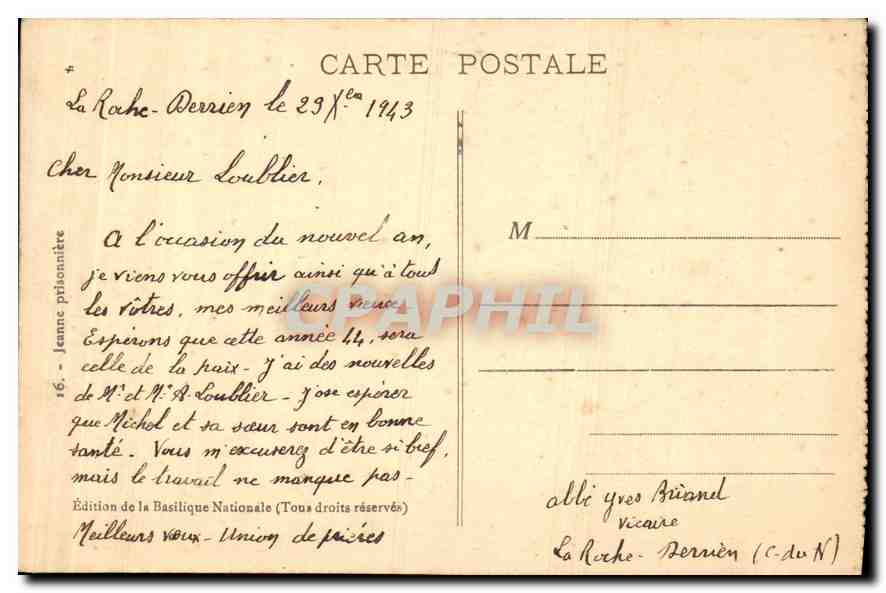 CARTE POSTALE
La Roche-Derrien le 29 Xem 1943
Cher Monsieur Loublier,
A l'occasion du nouvel an,
je viens vous offrir ainsi qu'à tous
les vôtres, mes meilleurs voeux.
Espérons que cette année 44, sera
celle de la paix - J'ai des nouvelles
de Mr et Me A. Loublier - J'ose espérer
que Michel et sa sœur sont en bonne
santé. Vous m'excuserez d'être si bref,
mais le travail ne manque pas -
Édition de la Basilique Nationale (Tous droits réservés)
Meilleurs vœux - Union de prières
16. - Jeanne prisonnière
M
abbé Yves Briand
vicaire
La Roche-Derrien (C-du N)
CPAPHIL